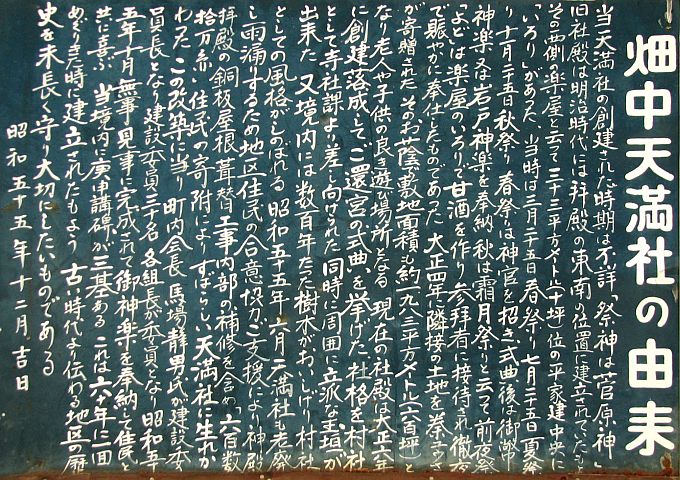 畑中天満社の由来
当天満社の創建された時期は不詳「祭神は菅原神」
旧社殿は明治時代には拝殿の東南の位置に建立されていたもよ
その側に楽屋と云って三十三平方メートル(十坪)位の平家建中央に
「いろり」があった、当時は三月二十五日春祭り 七月二十五日夏祭
り十一月二十五日秋祭り 春祭は神官を招き式典後は御幣
神楽又は岩戸神楽を奉納 秋は霜月祭りと云って前夜祭
「よど」は楽屋のいろりで甘酒を作り 参拝者に接待され徹夜
で賑やかに奉仕したものであった 大正四年に隣接の土地を
が寄贈された そのお蔭で敷地面積も約一九八三平方メートル(六百坪)と
なり老人や子供の良き遊び場所となる 現在の社殿は大正六年
に創建落成して ご還宮の式典を挙げた 社格を村社
として寺社課より差し向けられた 同時に周囲に立派な玉垣が
出来た 又境内には数百年たった樹木がおいしげり 村社
としての風格がしのばれる 昭和五十五年六月 天満社も老廃
し雨漏りするため地区住民の合意協力ご支援により 神殿
拝殿の銅板屋根葺替工事内部の補修を含め 六百数
拾万余 住民の寄附により すばらしい天満社に生れか
わった この改築に当り 町内会長 馬場静男氏が建設委
員長となり 建設委員二十名 各組長が委員となり 昭和五十
五年十月無事見事に完成されて御神楽を奉納して住民と
共に喜ぶ 当境内に庚申講碑が三基ある これは六十年に一回
めぐりきた時に建立されたもよう 古い時代より伝わる地区の歴
史を末長く守り大切にしたいものである
昭和五十五年十二月吉日